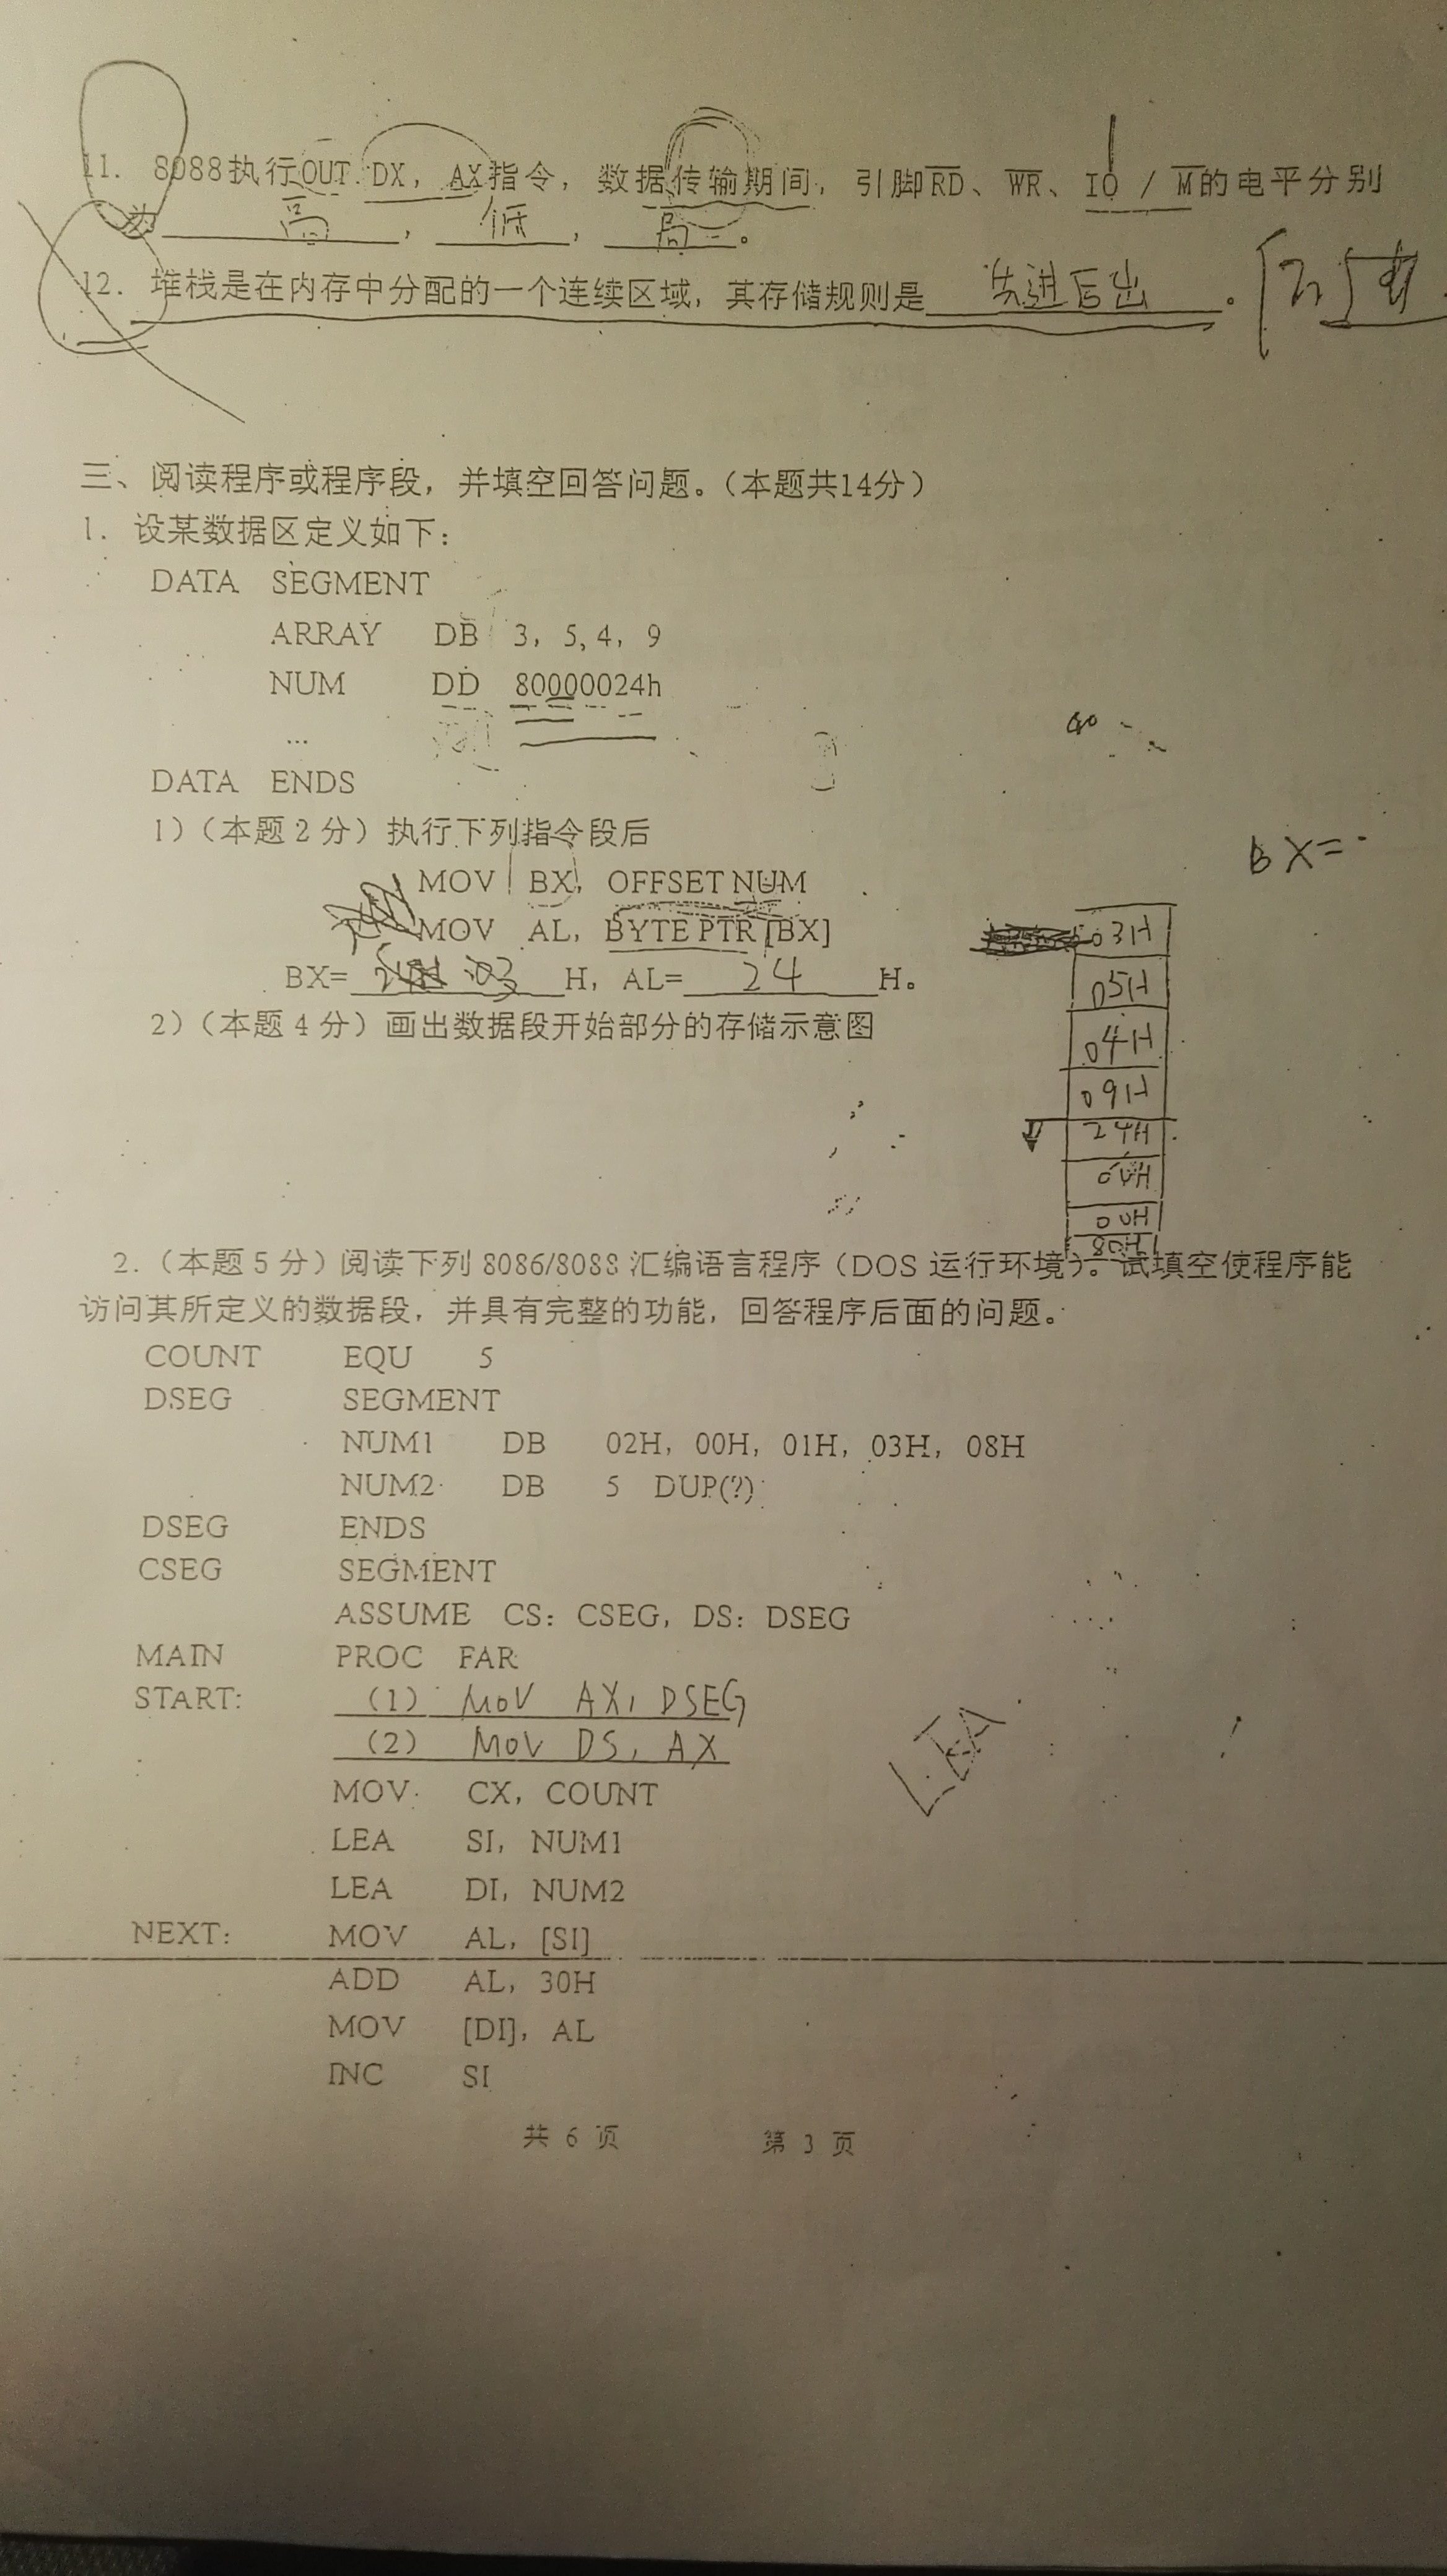 11. 8088执行OUT DX, AX指令, 数据传输期间, 引脚RD、WR、IO / M的电平分别
为 高 , 低 , 高 。
12. 堆栈是在内存中分配的一个连续区域, 其存储规则是 先进后出 。
三、阅读程序或程序段, 并填空回答问题。(本题共14分)
1. 设某数据区定义如下:
DATA SEGMENT
ARRAY DB 3, 5, 4, 9
NUM DD 80000024h
...
DATA ENDS
1)(本题 2 分)执行下列指令段后
BX=
MOV BX, OFFSET NUM
MOV AL, BYTE PTR [BX]
BX= 03 H, AL= 24 H。
2)(本题 4 分)画出数据段开始部分的存储示意图
03H
05H
04H
09H
24H
00H
00H
80H
2.(本题 5 分)阅读下列 8086/8088 汇编语言程序(DOS 运行环境)。试填空使程序能
访问其所定义的数据段, 并具有完整的功能, 回答程序后面的问题。
COUNT EQU 5
DSEG SEGMENT
NUM1 DB 02H, 00H, 01H, 03H, 08H
NUM2 DB 5 DUP(?)
DSEG ENDS
CSEG SEGMENT
ASSUME CS: CSEG, DS: DSEG
MAIN PROC FAR
START: (1) MOV AX, DSEG
(2) MOV DS, AX
LEA
MOV CX, COUNT
LEA SI, NUM1
LEA DI, NUM2
NEXT: MOV AL, [SI]
ADD AL, 30H
MOV [DI], AL
INC SI
共 6 页 第 3 页